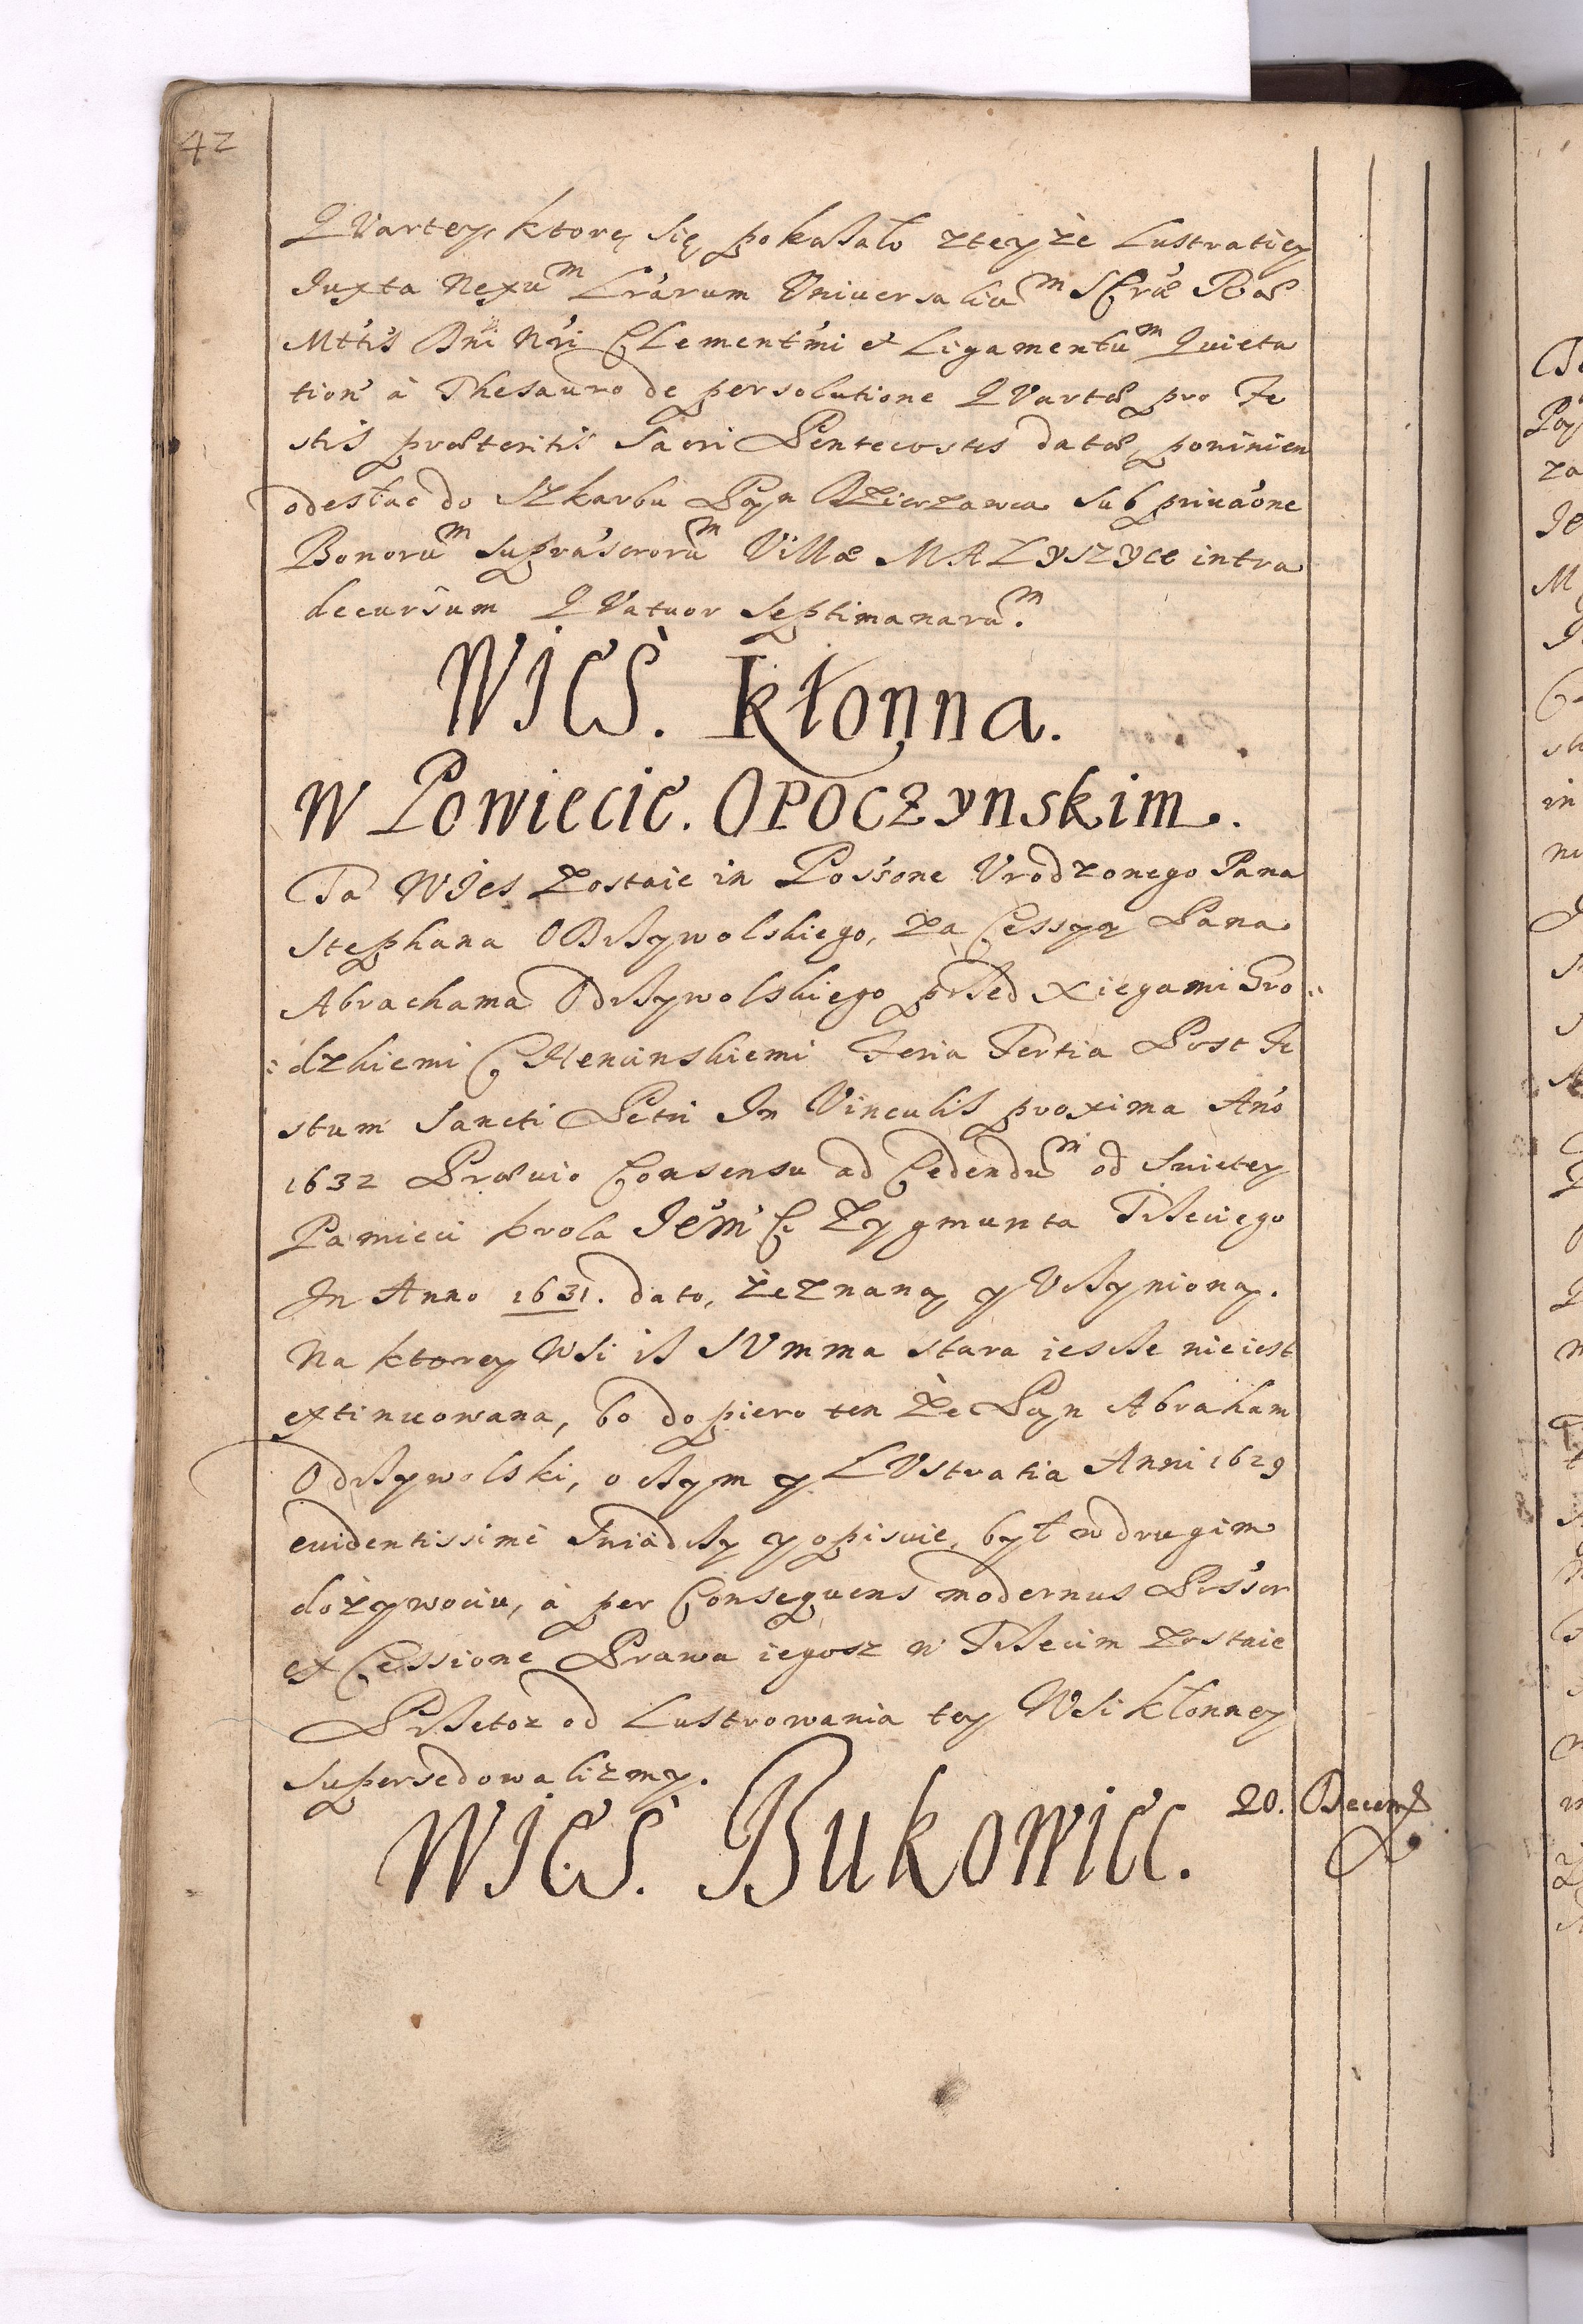 42
QVartey, ktorę się pokasało zteyże Lustratiey
Juxta Nexu͞m Lrárum Vniversaliu͞m SCrǽ Rǽ
Mttís Dńi Nŕi CLementḿi et Ligamentu͞m Quieta
tioń à Thesauro de persolutione QVartæ pro Fe
stis præteritis Sacri Pentecostes datæ, powinien
odesłac do Szkarbu Pąn Dzierzawca sub priuaóne
Bonoru͞m supraścroru͞m Villæ MAŁySZyce intra
decursum QVatuor Septimanaru͞m.
WIEŚ. Kłonna.
W Powiecie. OPOCZynskim.
Ta WIes zostaie in Posśone Vrodzonego Pana
Stephana ODrzywolskiego, za Cessyą Pana
Abrachama Odrzywolskiego przed Xięgami Gro:
:dzkiemi CHencinskiemi Feria Tertia Post Fe
stum Sancti Petri In Vinculis proxima Anó
1632 Præuio Consensu ad Cedendu͞m od Swietey
Pamieci Krola Jeḿ C Zygmunta Trzeciego
In Anno 1631. dato, zeznaną y Vczynioną.
Na ktorey Wsi isz SVmma stara iescze nieiest
extinuowana, bo dopiero ten że Pąn Abraham
Odrzywolski, o czym y LVstratia Anni 1629
euidentissimè Swiadczy y opisuie, był w drugim
dożywociu, à per Consequens modernus Posśor
ex Cessione Prawa iegosz w Trzecim zostaie
Przetoz od Lustrowania tey Wsi Kłonney
supersedowalizmy.
20. Decemb
WIEŚ. Bukowiec.